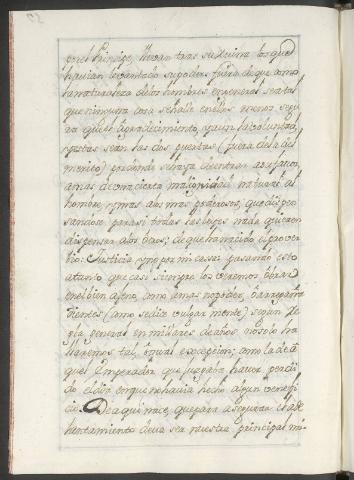 por el Principe, llevan tras su Reyna los que
havian levantado su poder: fuera de que como
la naturaleza de los hombres en general sea tal
que ninguna cosa se halle en ellos menos segu
ra que el agradecimiento, y aun la voluntad,
y estas sean las dos puertas (fuera de la de
merito) por donde se haya de entrar a su favor,
a mas de con cierta malignidad natural al
hombre, y mas a los mas poderosos, que dispen
sandose para si todas las leyes nada quieren
dispensar a los otros; de que ha nacido el prover
vio: Justicia, y no por mi casa: pasando esto
a tanto que casi siempre los veremos obrar
en el bien ageno, como a mas no poder, ò a rrepartir
dientes (como se dice vulgarmente) segun Re
gla general en millares de años no solo ha
llaremos tal, ò qual excepcion; como la de a
quel Emperador que juzgaba haver perdi
do el dia en que no havia hecho algun benefi
cio. De aqui nace, que para asegurar el ade
lantamiento deva ser nuestra principal in-